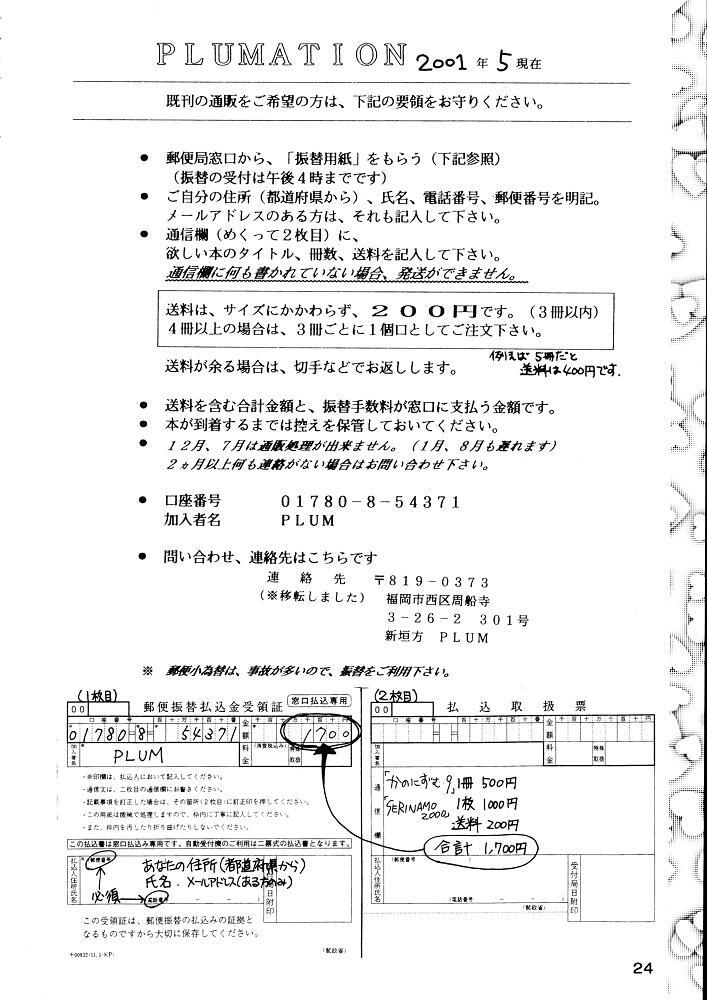 PLUMATION 2001年5現在
既刊の通販をご希望の方は、下記の要領をお守りください。
● 郵便局窓口から、「振替用紙」をもらう（下記参照）
（振替の受付は午後４時までです）
● ご自分の住所（都道府県から）、氏名、電話番号、郵便番号を明記。
メールアドレスのある方は、それも記入して下さい。
● 通信欄（めくって２枚目）に、
欲しい本のタイトル、冊数、送料を記入して下さい。
通信欄に何も書かれていない場合、発送ができません。
送料は、サイズにかかわらず、２００円です。（３冊以内）
４冊以上の場合は、３冊ごとに１個口としてご注文下さい。
送料が余る場合は、切手などでお返しします。
例えば5冊だと
送料は400円です.
● 送料を含む合計金額と、振替手数料が窓口に支払う金額です。
● 本が到着するまでは控えを保管しておいてください。
● １２月、７月は通販処理が出来ません。（１月、８月も遅れます）
２ヵ月以上何も連絡がない場合はお問い合わせ下さい。
● 口座番号 ０１７８０－８－５４３７１
加入者名 ＰＬＵＭ
● 問い合わせ、連絡先はこちらです
連絡先 〒８１９－０３７３
（※移転しました） 福岡市西区周船寺
３－２６－２ ３０１号
新垣方 ＰＬＵＭ
※ 郵便小為替は、事故が多いので、振替をご利用下さい。
(1枚目)
00 郵便振替払込金受領証 窓口払込専用
口座番号 百十万千百十番 金額 千百十万千百十円
01780-8-54371 1700
加入者名 PLUM 料金 (消費税込み) 特殊取扱
・※印欄は、払込人において記入してください。
・通信文は、二枚目の通信欄にお書きください。
・記載事項を訂正した場合は、その箇所(２枚目)に訂正印を押してください。
・この用紙は機械で処理しますので、枠内に丁寧に記入してください。
・また、枠内を汚したり折り曲げたりしないでください。
この払込書は窓口払込み専用です。自動受付機のご利用は二票式の払込書となります。
払込人住所氏名 郵便番号 あなたの住所(都道府県から)
氏名．メールアドレス(ある方のみ)
必須 電話番号
日附印
この受領証は、郵便振替の払込みの証拠と
なるものですから大切に保存してください。
(郵政省)
(2枚目)
00 払込取扱票
口座番号 百十万千百十番 金額 千百十万千百十円
加入者名 料金 特殊取扱
通信欄
「かのにずむ9」1冊 500円
「SERINAMO 2000」1枚 1000円
送料 200円
合計 1,700円
払込人住所氏名
(電話番号 － － )
(郵政省)
受付局日附印
24